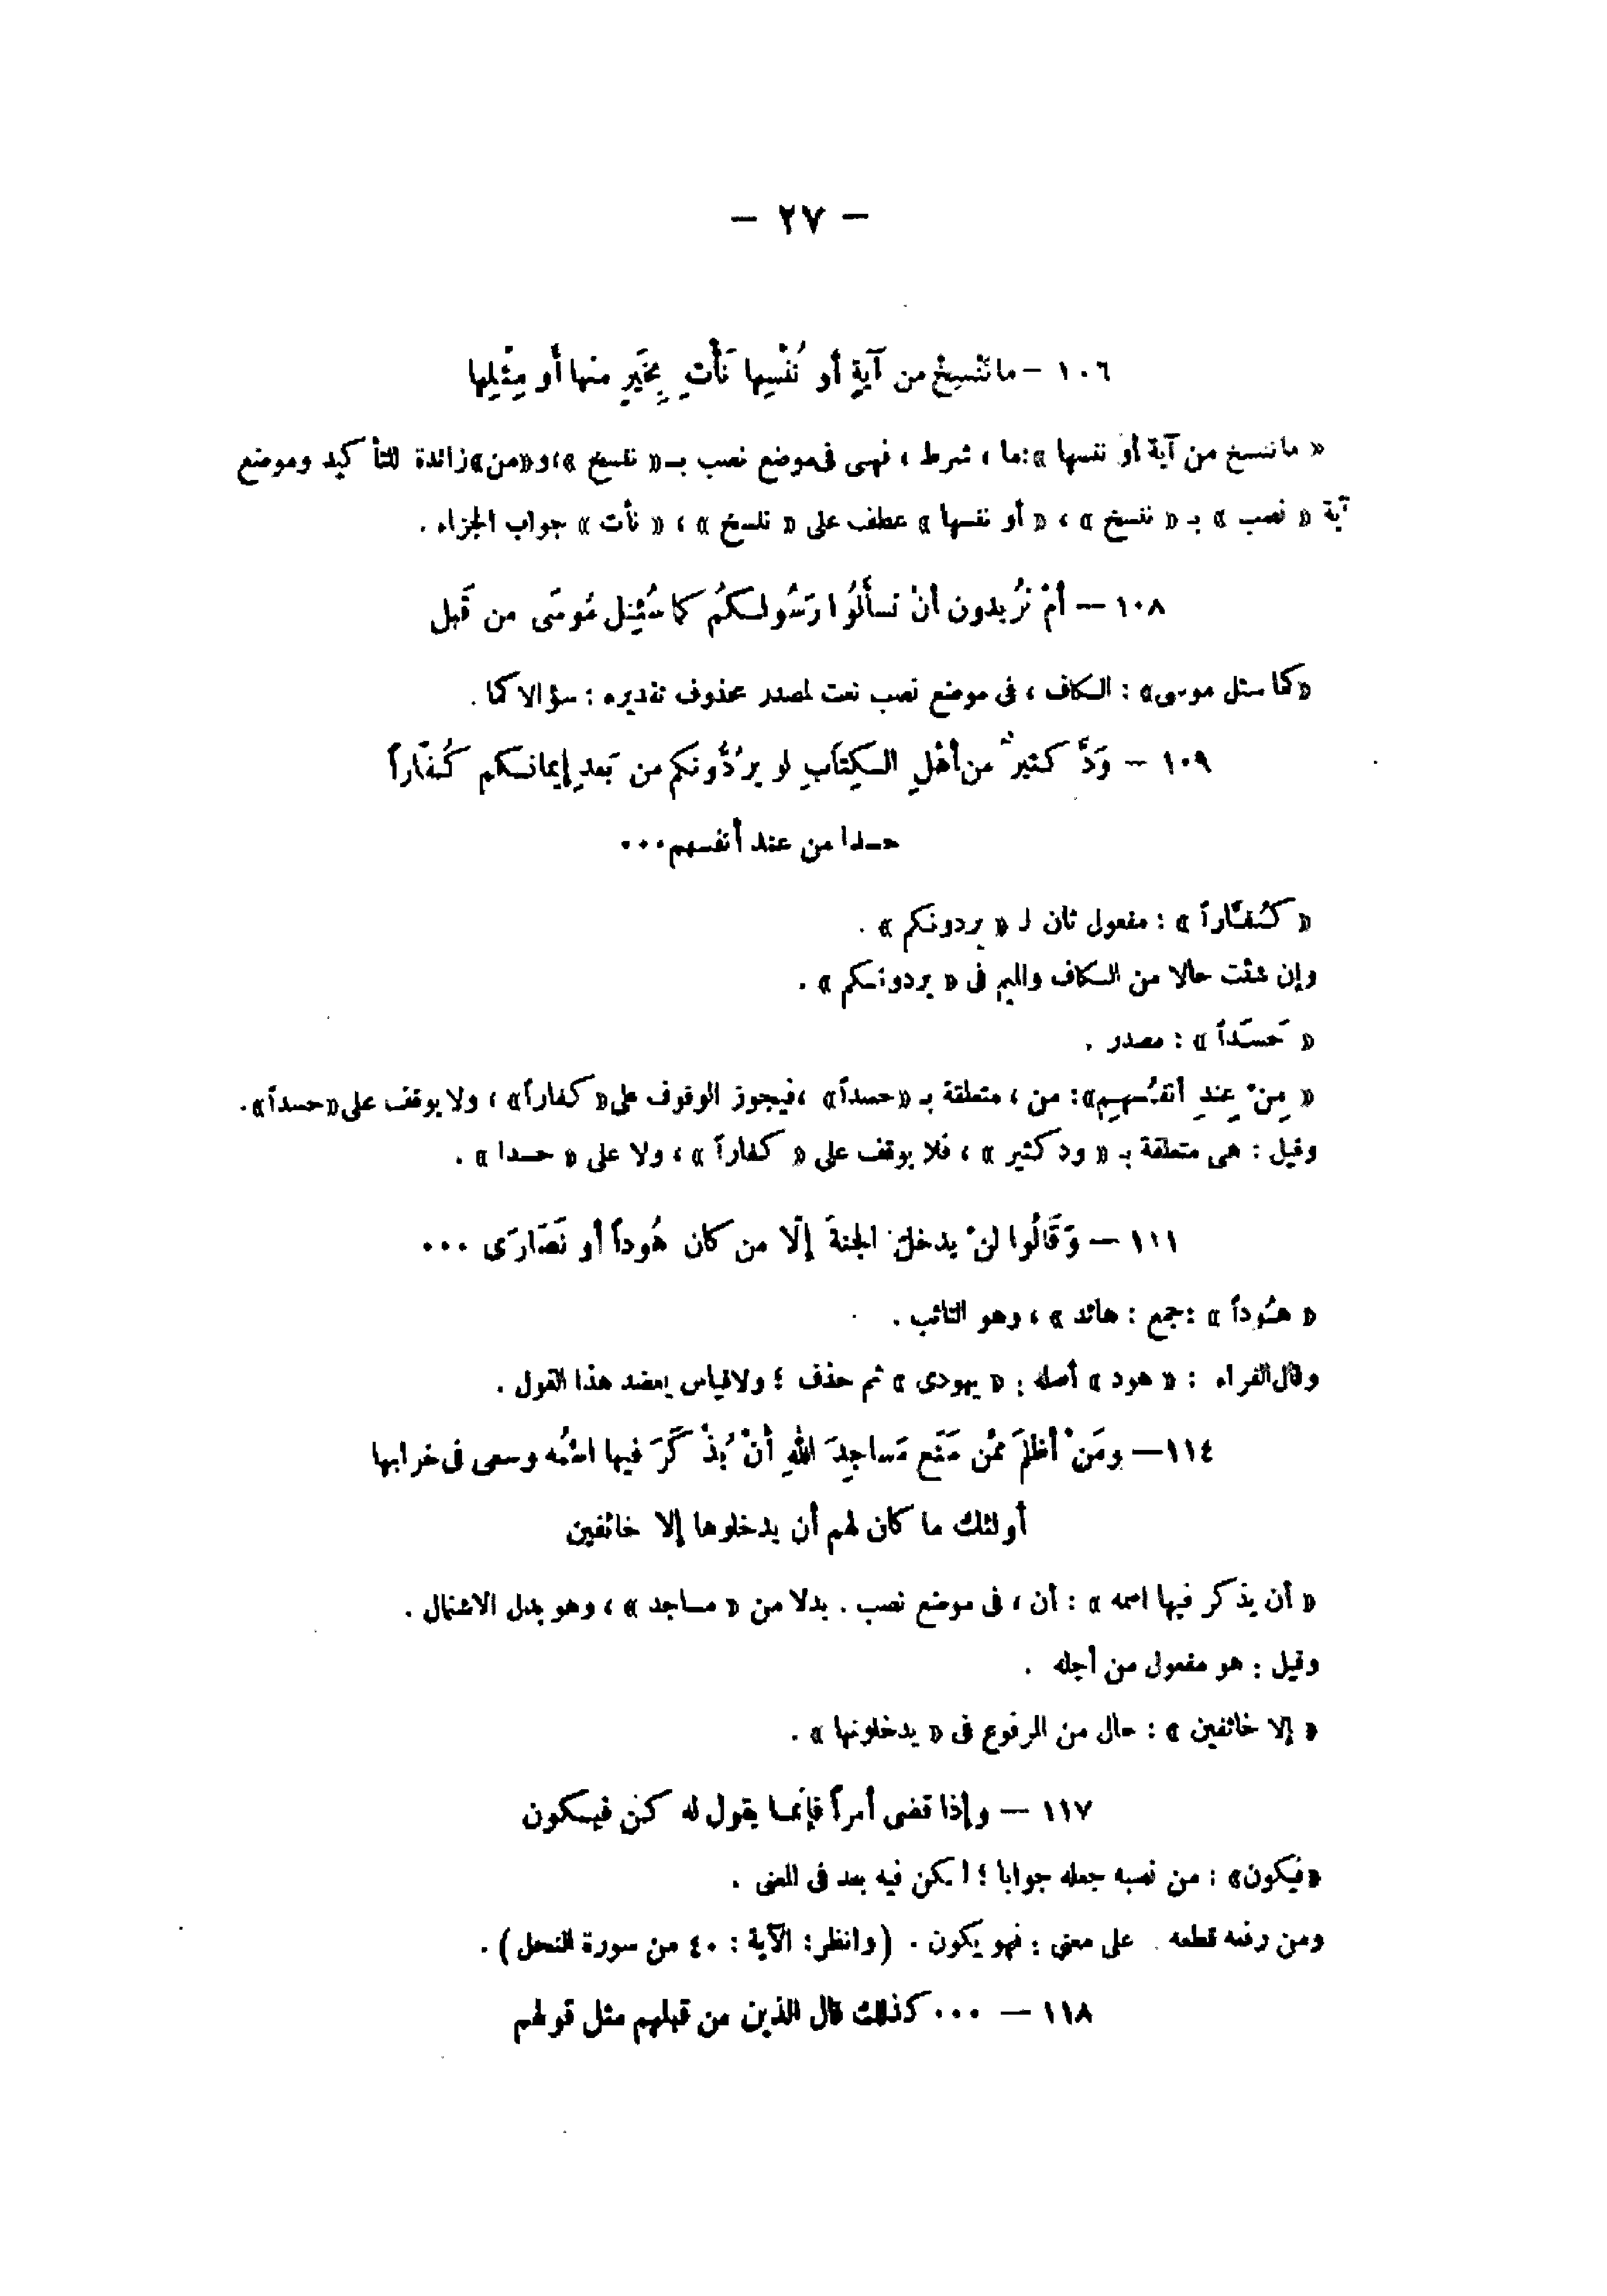 — ٢٧ —
١٠٦ — ما نَنْسِخْ من آيةٍ أو نُنْسِها نَأْتِ بِخَيرٍ منها أو مِثْلِها
« ما ننسخ من آية أو ننسها »: ما ، شرط ، فهى فى موضع نصب بـ « ننسخ »، و«من» زائدة للتأكيد وموضع
آية « نصب » بـ « ننسخ » ، « أو ننسها » عطف على « ننسخ » ، « نأت » جواب الجزاء .
١٠٨ — أمْ تُريدون أنْ تسألُوا رَسُولكمُ كما سُئِل مُوسَى من قَبل
«كما سئل موسى» : الكاف ، فى موضع نصب نعت لمصدر محذوف تقديره : سؤالا كما .
١٠٩ — وَدَّ كثيرٌ من أهْلِ الكِتَابِ لو يردُّونكم من بَعدِ إيمانكم كُفّاراً
حسدا من عند أنفسهم ...
« كُفّاراً » : مفعول ثان لـ « يردونكم » .
وإن شئت حالا من الكاف والميم فى « يردونكم » .
« حَسَداً » : مصدر .
« مِنْ عِندِ أنفُسهِم» : من ، متعلقة بـ «حسداً» ،فيجوز الوقوف على« كفاراً» ، ولا يوقف على «حسداً».
وقيل : هى متعلقة بـ « ود كثير » ، فلا يوقف على « كفاراً » ، ولا على « حسدا » .
١١١ — وَقَالُوا لنْ يدخلَ الجنةَ إلّا من كان هُوداً أو نَصَارَى ...
« هُوداً » :جمع : هائد » ، وهو التائب .
وقال الفراء : « هود » أصله : « يهودى » ثم حذف ؛ ولا قياس يعضد هذا القول .
١١٤ — ومَنْ أظلمَ ممَّن مَنَع مَساجِدَ اللهِ أنْ يُذْكَرَ فيها اسْمُه وسعى فى خرابها
أولئك ما كان لهم أن يدخلوها إلا خائفين
« أن يذكر فيها اسمه » : أن ، فى موضع نصب . بدلا من « مساجد » ، وهو بدل الاشتمال .
وقيل : هو مفعول من أجله .
« إلا خائفين » : حال من المرفوع فى « يدخلونها » .
١١٧ — وإذا قضى أمراً فإنما يقول له كن فيكون
«فيكون» : من نصبه جعله جوابا ؛ لكن فيه بعد فى المعنى .
ومن رفعه قطعه على معنى : فهو يكون . (وانظر: الآية : ٤٠ من سورة النحل) .
١١٨ — ... كذلك قال الذين من قبلهم مثل قولهم